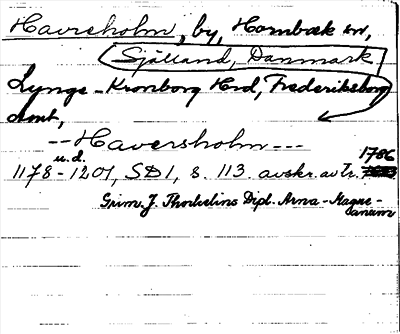 Havreholm, by, Hornbæk sn,
Själland, Danmark
Lynge-Kronborg Hrd, Frederiksborg
Amt,
--Haversholm---
u.d.
1178-1201, SD 1, s. 113. avskr. av tr. 1786
Grim. J. Thorkelins Dipl. Arna-Magne-
anum